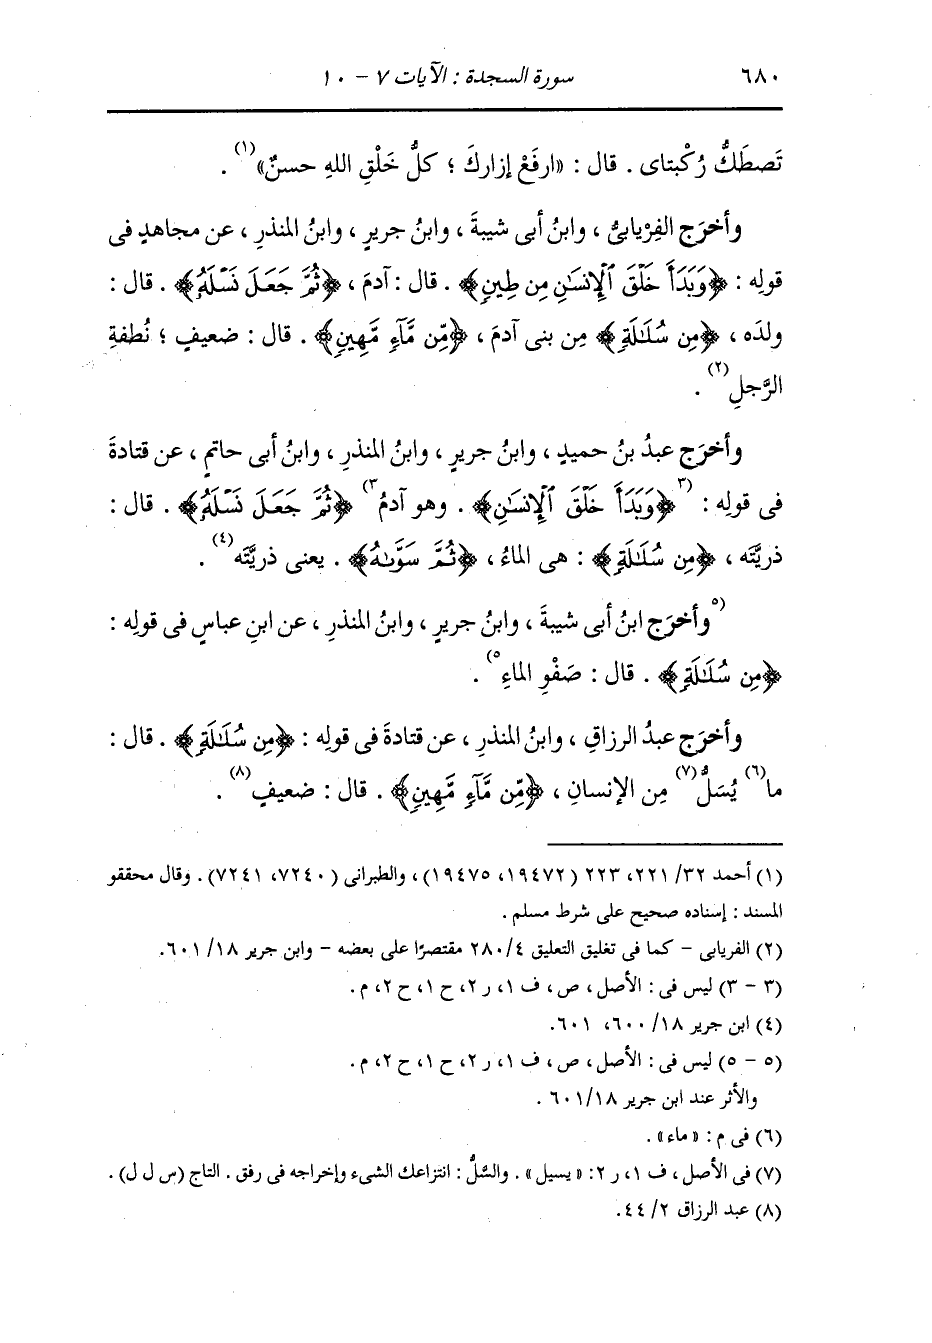 ٦٨٠ سورة السجدة : الآيات ٧ - ١٠
تَصطَكُّ رُكْبتاى . قال : «ارفَعْ إزارَكَ ؛ كلُّ خَلْقِ اللهِ حسنٌ»(١) .
وأخرَج الفِرْيابىُّ ، وابنُ أبى شيبةَ ، وابنُ جريرٍ ، وابنُ المنذرِ ، عن مجاهدٍ فى
قولِه : ﴿وَبَدَأَ خَلْقَ ٱلْإِنسَٰنِ مِن طِينٍ﴾ . قال : آدمَ ، ﴿ثُمَّ جَعَلَ نَسْلَهُۥ﴾ . قال :
ولدَه ، ﴿مِن سُلَٰلَةٍ﴾ مِن بنى آدمَ ، ﴿مِّن مَّآءٍ مَّهِينٍ﴾ . قال : ضعيفٍ ؛ نُطفةِ
الرَّجلِ(٢) .
وأخرَج عبدُ بنُ حميدٍ ، وابنُ جريرٍ ، وابنُ المنذرِ ، وابنُ أبى حاتمٍ ، عن قتادةَ
فى قولِه : (٣﴿وَبَدَأَ خَلْقَ ٱلْإِنسَٰنِ﴾ . وهو آدمُ٣) ﴿ثُمَّ جَعَلَ نَسْلَهُۥ﴾ . قال :
ذريَّتَه ، ﴿مِن سُلَٰلَةٍ﴾ : هى الماءُ ، ﴿ثُمَّ سَوَّىٰهُ﴾ . يعنى ذريَّتَه(٤) .
(٥وأخرَج ابنُ أبى شيبةَ ، وابنُ جريرٍ ، وابنُ المنذرِ ، عن ابنِ عباسٍ فى قولِه :
﴿مِن سُلَٰلَةٍ﴾ . قال : صَفْوِ الماءِ٥) .
وأخرَج عبدُ الرزاقِ ، وابنُ المنذرِ ، عن قتادةَ فى قولِه : ﴿مِن سُلَٰلَةٍ﴾ . قال :
ما(٦) يُسَلُّ(٧) مِن الإنسانِ ، ﴿مِّن مَّآءٍ مَّهِينٍ﴾ . قال : ضعيفٍ(٨) .
(١) أحمد ٣٢/ ٢٢١، ٢٢٣ (١٩٤٧٢، ١٩٤٧٥) ، والطبرانى (٧٢٤٠، ٧٢٤١) . وقال محققو
المسند : إسناده صحيح على شرط مسلم .
(٢) الفريابى - كما فى تغليق التعليق ٤/ ٢٨٠ مقتصرًا على بعضه - وابن جرير ١٨/ ٦٠١.
(٣ - ٣) ليس فى : الأصل ، ص ، ف ١، ر ٢، ح ١، ح ٢، م .
(٤) ابن جرير ١٨/ ٦٠٠، ٦٠١.
(٥ - ٥) ليس فى : الأصل ، ص ، ف ١، ر ٢، ح ١، ح ٢، م .
والأثر عند ابن جرير ١٨/ ٦٠١ .
(٦) فى م : «ماء» .
(٧) فى الأصل ، ف ١، ر ٢: «يسيل» . والسَّلُّ : انتزاعك الشىء وإخراجه فى رفق . التاج (س ل ل) .
(٨) عبد الرزاق ٢/ ٤٤.